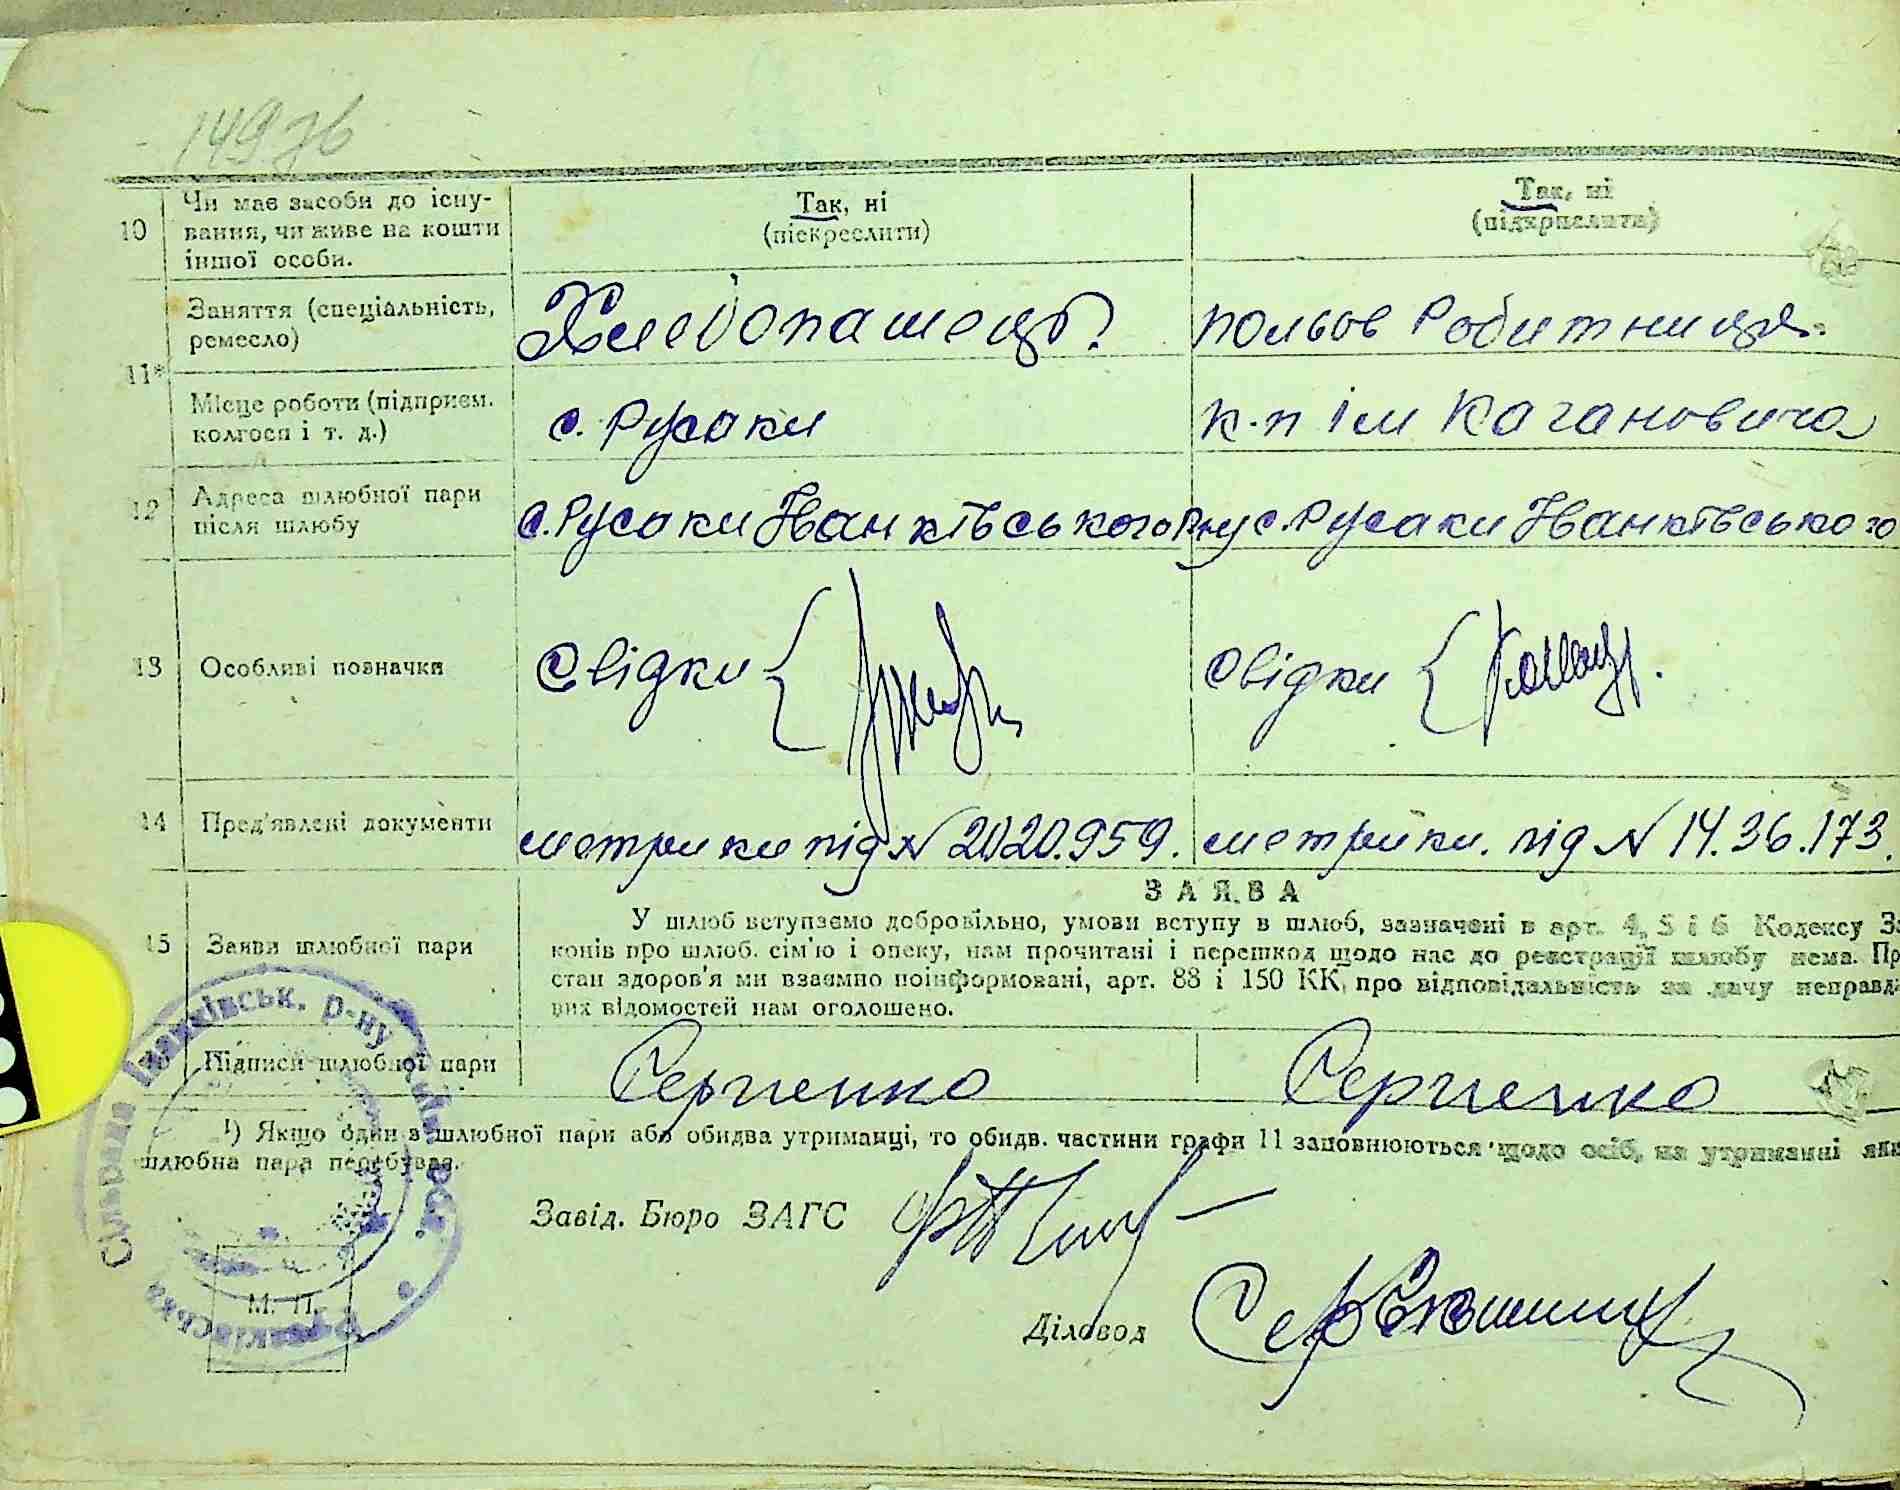 149 зв
10 Чи має засоби до існу-
вання, чи живе на кошти
іншої особи.
Так, ні
(піскреслити)
Так, ні
(підкрислити)
11*
Заняття (спеціальність,
ремесло)
Хлебопашець.
польов Робитниця.
Місце роботи (підприєм.
колгосп і т. д.)
с. Русаки
к.п ім Кагановича
12 Адреса шлюбної пари
після шлюбу
с. Русаки Іванківського Рну
с. Русаки Іванківського
13 Особливі позначки
Свідки {
Свідки {
14 Пред'явлені документи
метрики під № 2020.959.
метрики. під № 14.36.173.
15 Заяви шлюбної пари
ЗАЯВА
У шлюб вступаємо добровільно, умови вступу в шлюб, зазначені в арт. 4, 5 і 6 Кодексу За
конів про шлюб. сім'ю і опеку, нам прочитані і перешкод щодо нас до реєстрації шлюбу нема. Пр
стан здоров'я ми взаємно поінформовані, арт. 88 і 150 КК, про відповідальність за дачу неправд
вих відомостей нам оголошено.
Підписи шлюбної пари
Серпенко
Серпенко
¹) Якщо один з шлюбної пари або обидва утриманці, то обидв. частини графи 11 заповнюються щодо осіб, на утриманні яки
шлюбна пара перебуває.
Завід. Бюро ЗАГС
Діловод
М. П.
Сільрада Іванківськ. р-ну